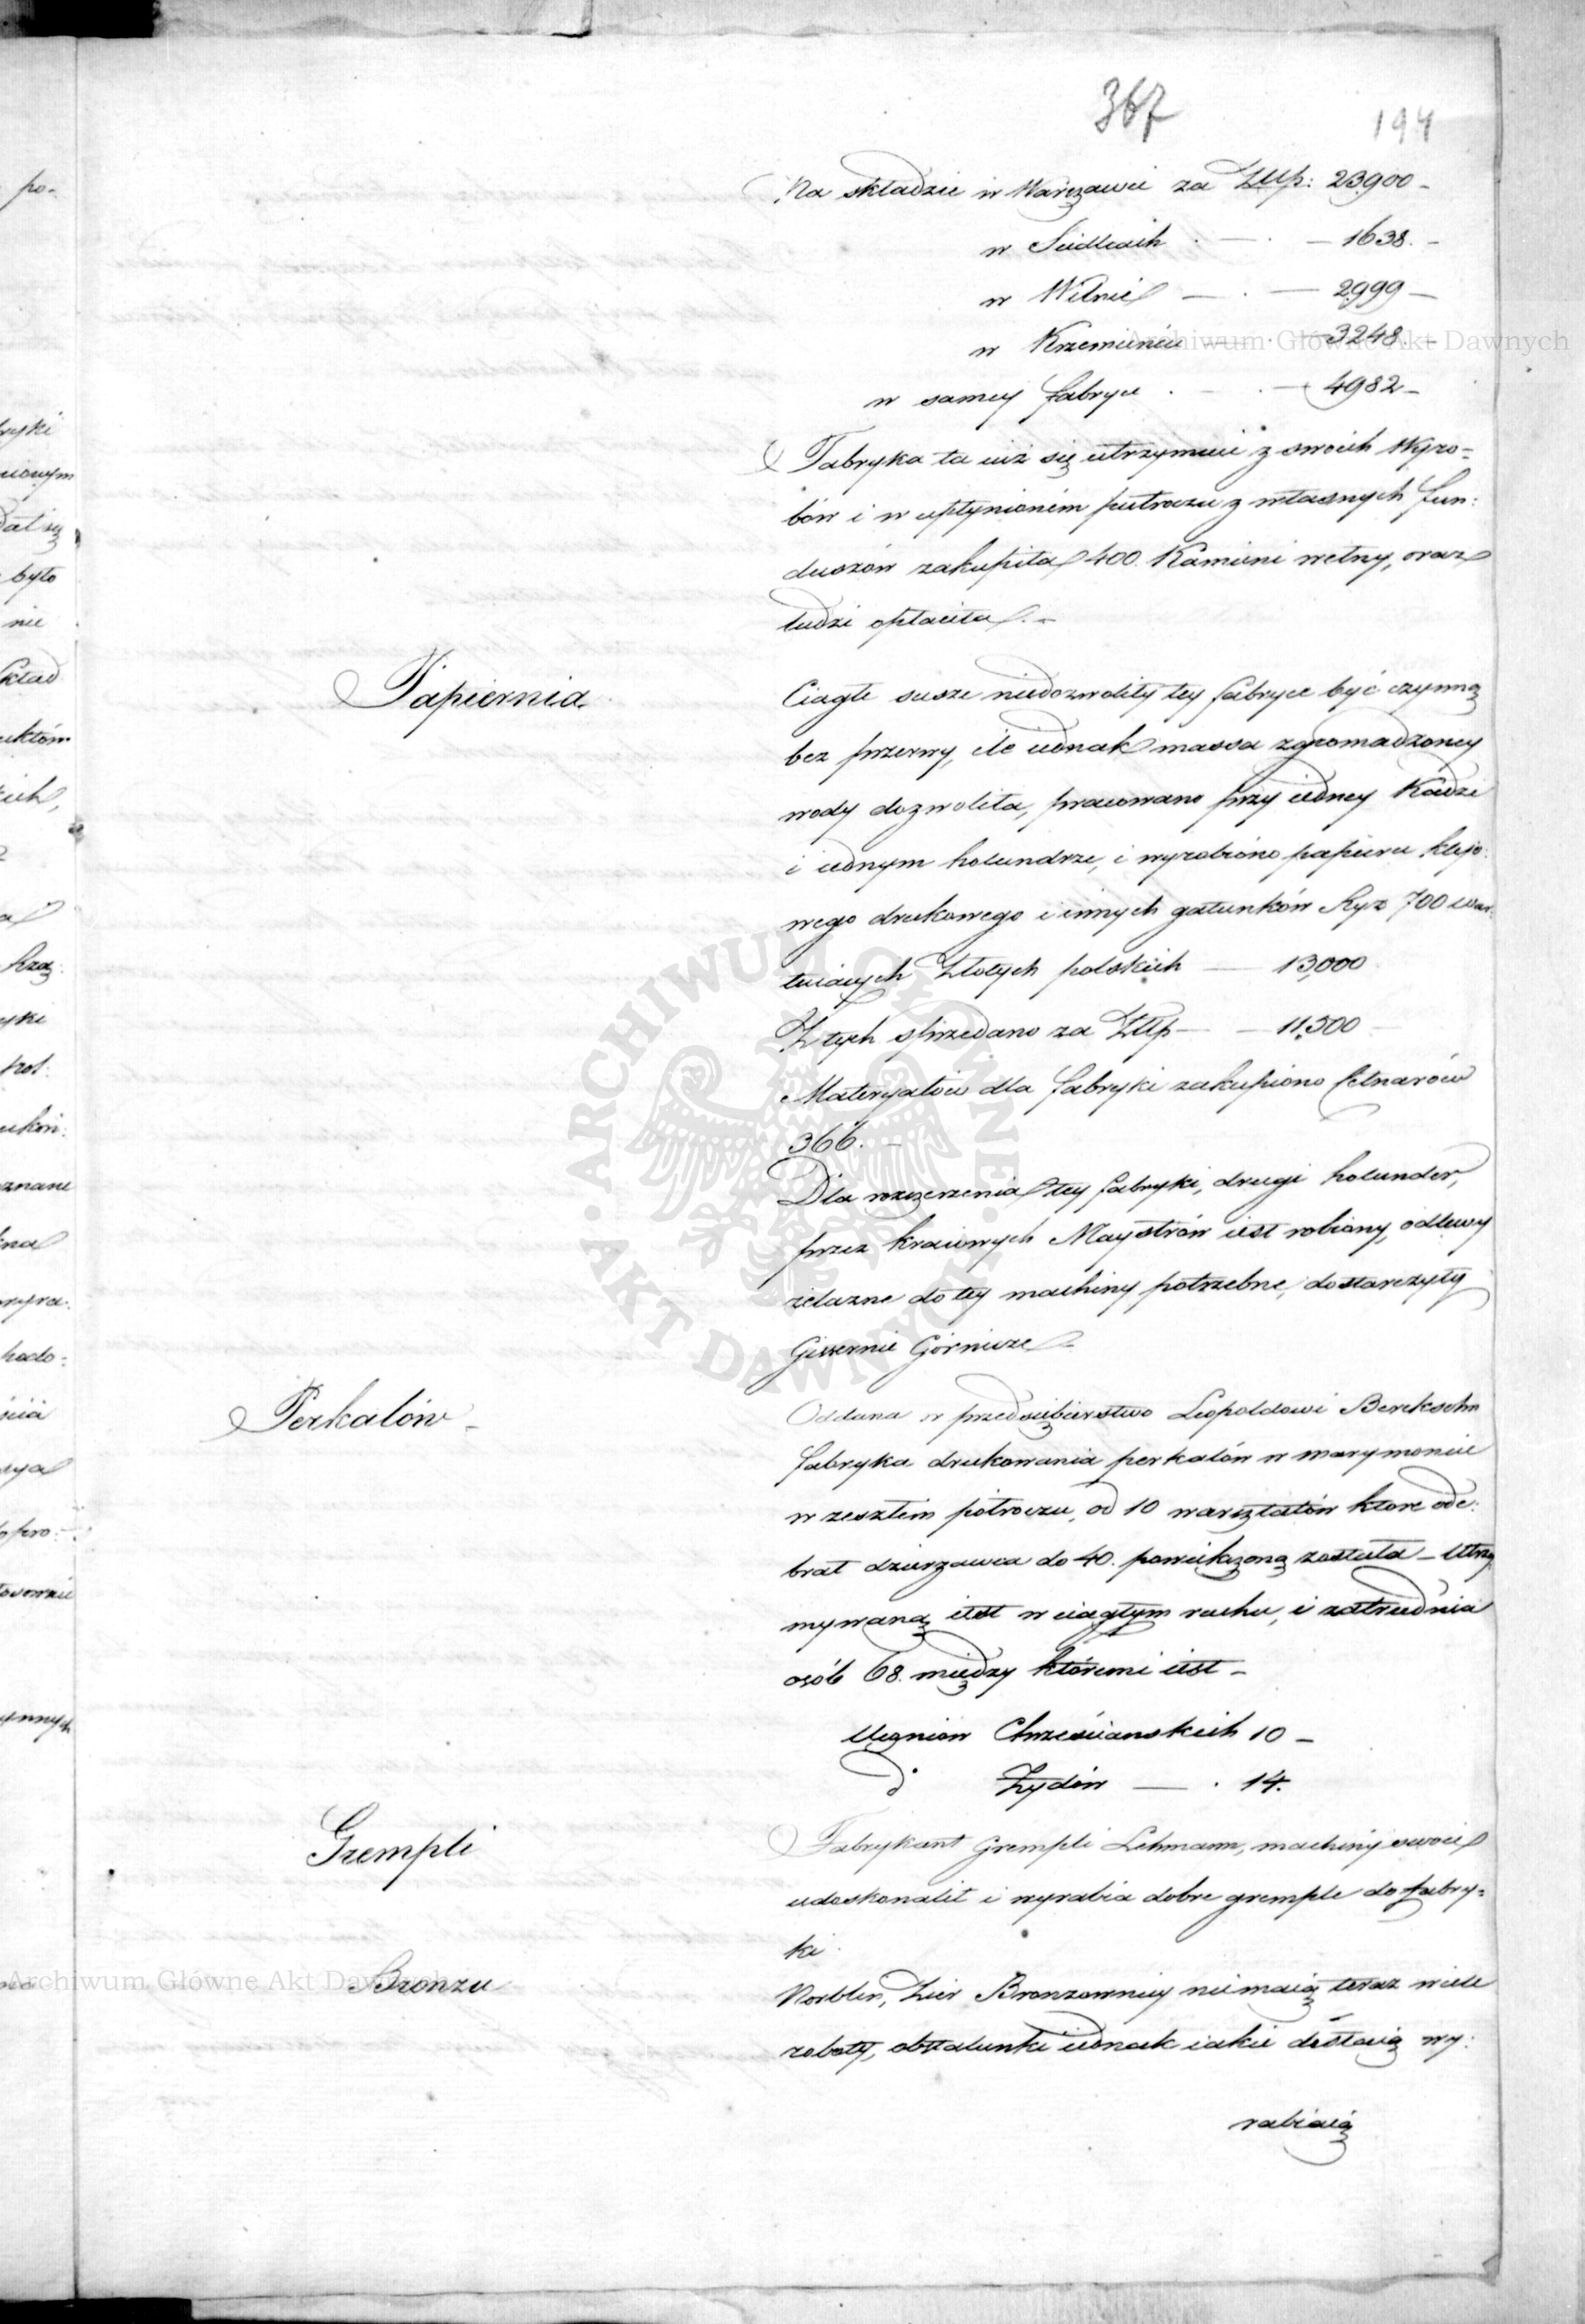 367 194
Na składzie w Warszawie za Złłp: 23900 –
w Siedlcach . — . — 1638. –
w Wilnie — . — 2999 –
w Krzemieńcu — . — 3248 –
w samey fabryce . — . — 4982 –
Fabryka ta iuż się utrzymuie z swoich wyro=
bów i w upłynioném pułroczu z własnych fun:
duszów zakupiła 400. Kamieni wełny, oraz
ludzi opłaciła. –
Papiernia.
Ciągłe susze niedozwoliły tey fabryce być czynną
bez przerwy, ile iednak massa zgromadzoney
wody dozwoliła, pracowano przy iedney Kadzi
i iednym holundrze, i wyrobiono papieru klejo:
wego drukowego i innych gatunków Ryz 700 war:
tuiących Złotych polskich — 13,000
Z tych sprzedano za Złłp — — 11,500
Materyałów dla fabryki zakupiono Cetnarów
366. –
Dla rozszerzenia tey fabryki, drugi holunder,
przez kraiowych Maystrów iest robiony, odlewy
żelazne do tey machiny potrzebne, dostarczyły
Gissernie Górnicze –
Perkalów –
Oddana w przedsiębierstwo Leopoldowi Bereksohn
fabryka drukowania perkalów w marymoncie
w zeszłém półroczu, od 10 warsztatów które ode:
brał dzierzawca do 40. powiekszoną została – Utrzy
mywaną iest w ciągłym ruchu, i zatrudnia
osób 68. między któremi iest –
Uczniów Chrześciańskich 10 –
d° Żydów — . 14.
Grempli
Fabrykant Grempli Lehmann, machiny swoie
udoskonalił i wyrabia dobre gremple do fabry=
ki
Bronzu
Norblin, Zier Bronzownicy nie maią teraz wiele
roboty, obstalunki iednak iakie dostaią wy:
rabiaią
po-
było
nie
skład
znane
Archiwum Główne Akt Dawnych
Archiwum Główne Akt Dawnych
· ARCHIWUM GŁÓWNE · AKT DAWNYCH